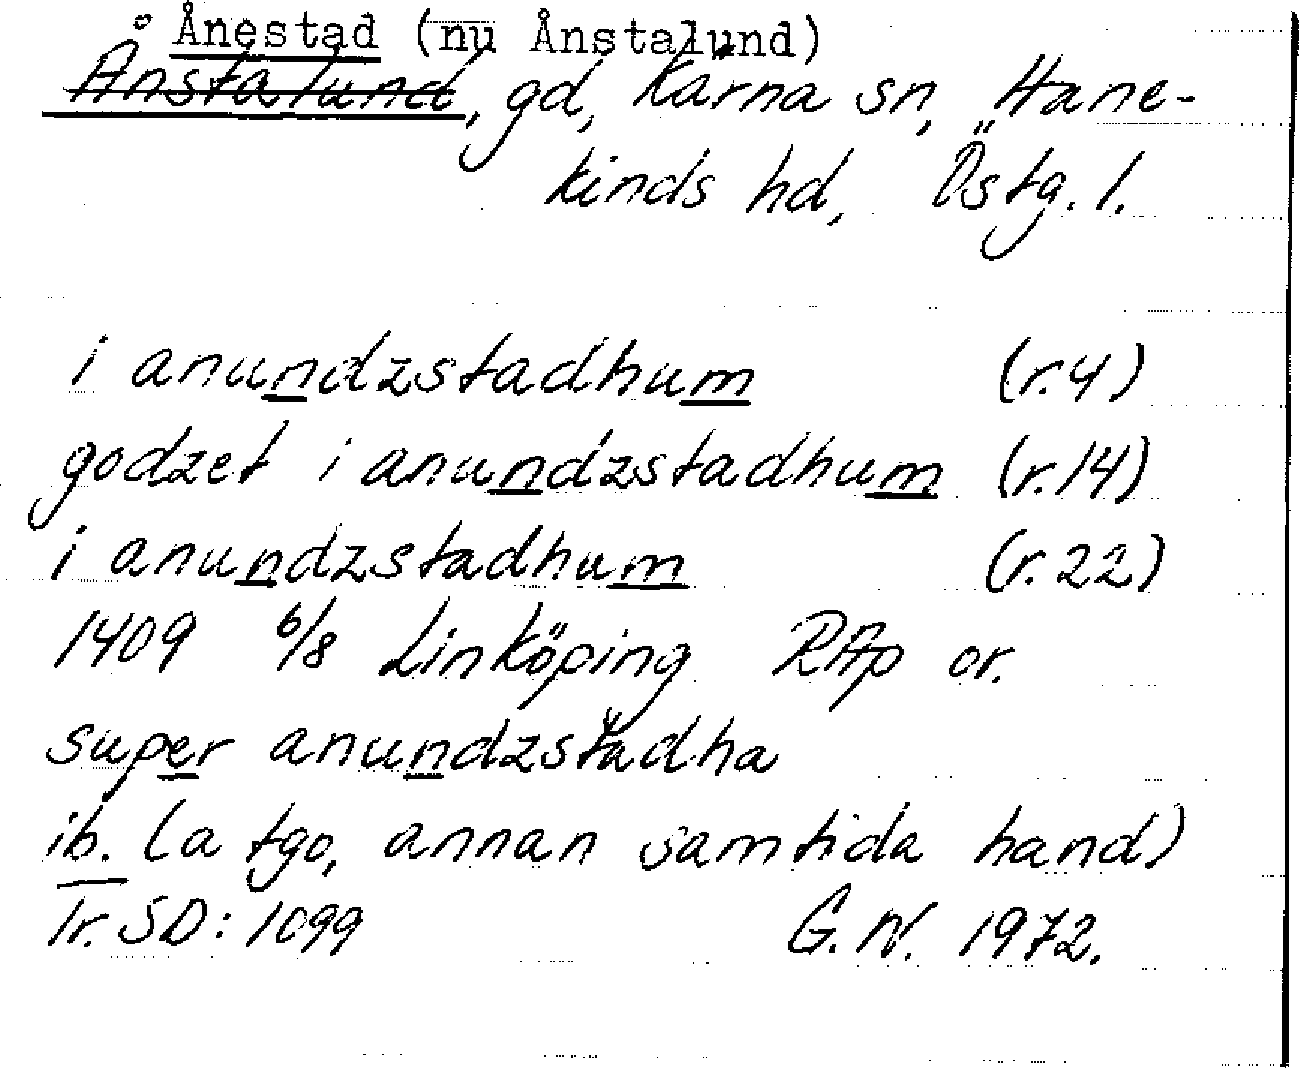 Ånestad (nu Ånstalund)
Ånstalund, gd, Kärna sn, Hane-
kinds hd, Östg. l.
i anundzstadhum (r.4)
godzet i anundzstadhum (r.14)
i anundzstadhum (r.22)
1409 6/8 Linköping RAp or.
super anundzstadha
ib. (a tgo, annan samtida hand)
Tr. SD: 1099 G. N. 1972.